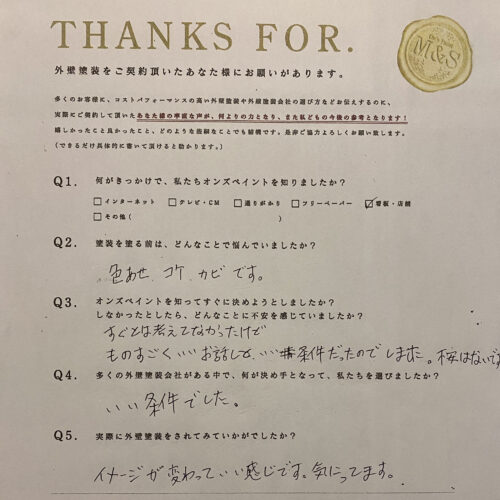 THANKS FOR.
M&S
外壁塗装をご契約頂いたあなた様にお願いがあります。
多くのお客様に、コストパフォーマンスの高い外壁塗装や外壁塗装会社の選び方などお伝えするのに、
実際にご契約して頂いたあなた様の率直な声が、何よりの力となり、また私どもの今後の参考となります!
嬉しかったこと良かったこと、どのような些細なことでも結構です。是非ご協力よろしくお願い致します。
(できるだけ具体的に書いて頂けると助かります。)
Q1. 何がきっかけで、私たちオンズペイントを知りましたか?
□インターネット □テレビ・CM □通りがかり □フリーペーパー ☑看板・店舗
□その他( )
Q2. 塗装を塗る前は、どんなことで悩んでいましたか?
色あせ、コケ、カビです。
Q3. オンズペイントを知ってすぐに決めようとしましたか?
しなかったとしたら、どんなことに不安を感じていましたか?
すぐとは考えてなかったけど
ものすごくいいお話しで、いい条件だったのでしました。不安はないです
Q4. 多くの外壁塗装会社がある中で、何が決め手となって、私たちを選びましたか?
いい条件でした。
Q5. 実際に外壁塗装をされてみていかがでしたか?
イメージが変わっていい感じです。気に入ってます。